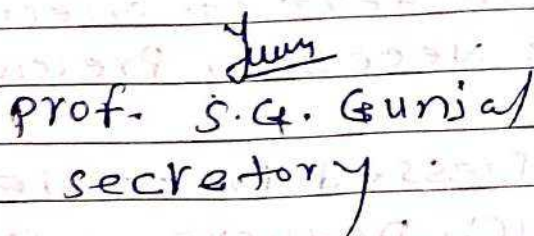 prof. S.G. Gunjal
secretory.